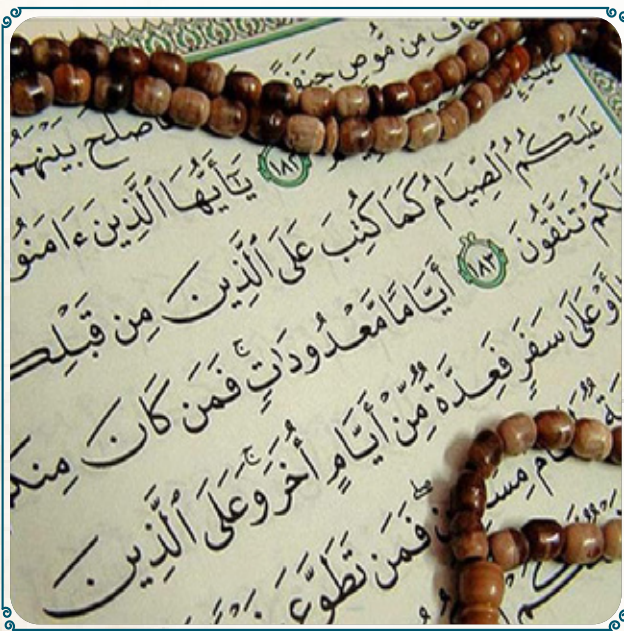 مِن مُّوصٍ بَيْنَهُمْ
عَلَيْهِ ١٨٢ يَـٰٓأَيُّهَا ٱلَّذِينَ ءَامَنُوا
عَلَيْكُمُ ٱلصِّيَامُ كَمَا كُتِبَ عَلَى ٱلَّذِينَ مِن قَبْلِكُ
تَتَّقُونَ ١٨٣ أَيَّامًا مَّعْدُودَٰتٍ ۚ فَمَن كَانَ مِنكُم
أَوْ عَلَىٰ سَفَرٍ فَعِدَّةٌ مِّنْ أَيَّامٍ أُخَرَ ۚ وَعَلَى ٱلَّذِينَ
فَمَن تَطَوَّعَ